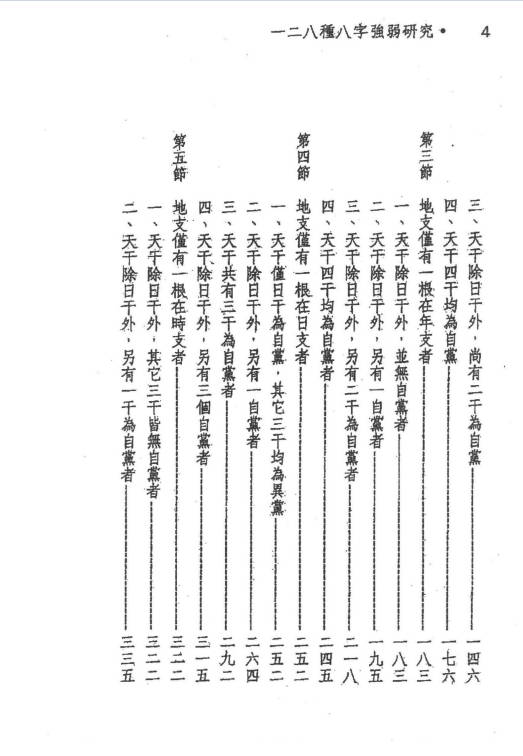 一二八種八字強弱研究・ 4
三、天干除日干外，尚有二干為自黨 一四六
四、天干四干均為自黨 一七六
第三節 地支僅有一根在年支者 一八三
一、天干除日干外，並無自黨者 一八三
二、天干除日干外，另有一自黨者 一九五
三、天干除日干外，另有二干為自黨者 二一八
四、天干四干均為自黨者 二四五
第四節 地支僅有一根在日支者 二五二
一、天干僅日干為自黨，其它三干均為異黨 二五二
二、天干除日干外，另有一自黨者 二六四
三、天干共有三干為自黨者 二九二
四、天干除日干外，另有三個自黨者 三一五
第五節 地支僅有一根在時支者 三二二
一、天干除日干外，其它三干皆無自黨者 三二二
二、天干除日干外，另有一干為自黨者 三三五